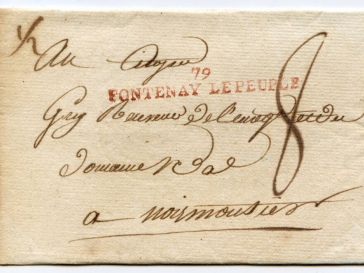 Au Citoyen
79
FONTENAY LEPEUPLE
8
Receveur de l'enreg et du
domaine
a noirmoutier